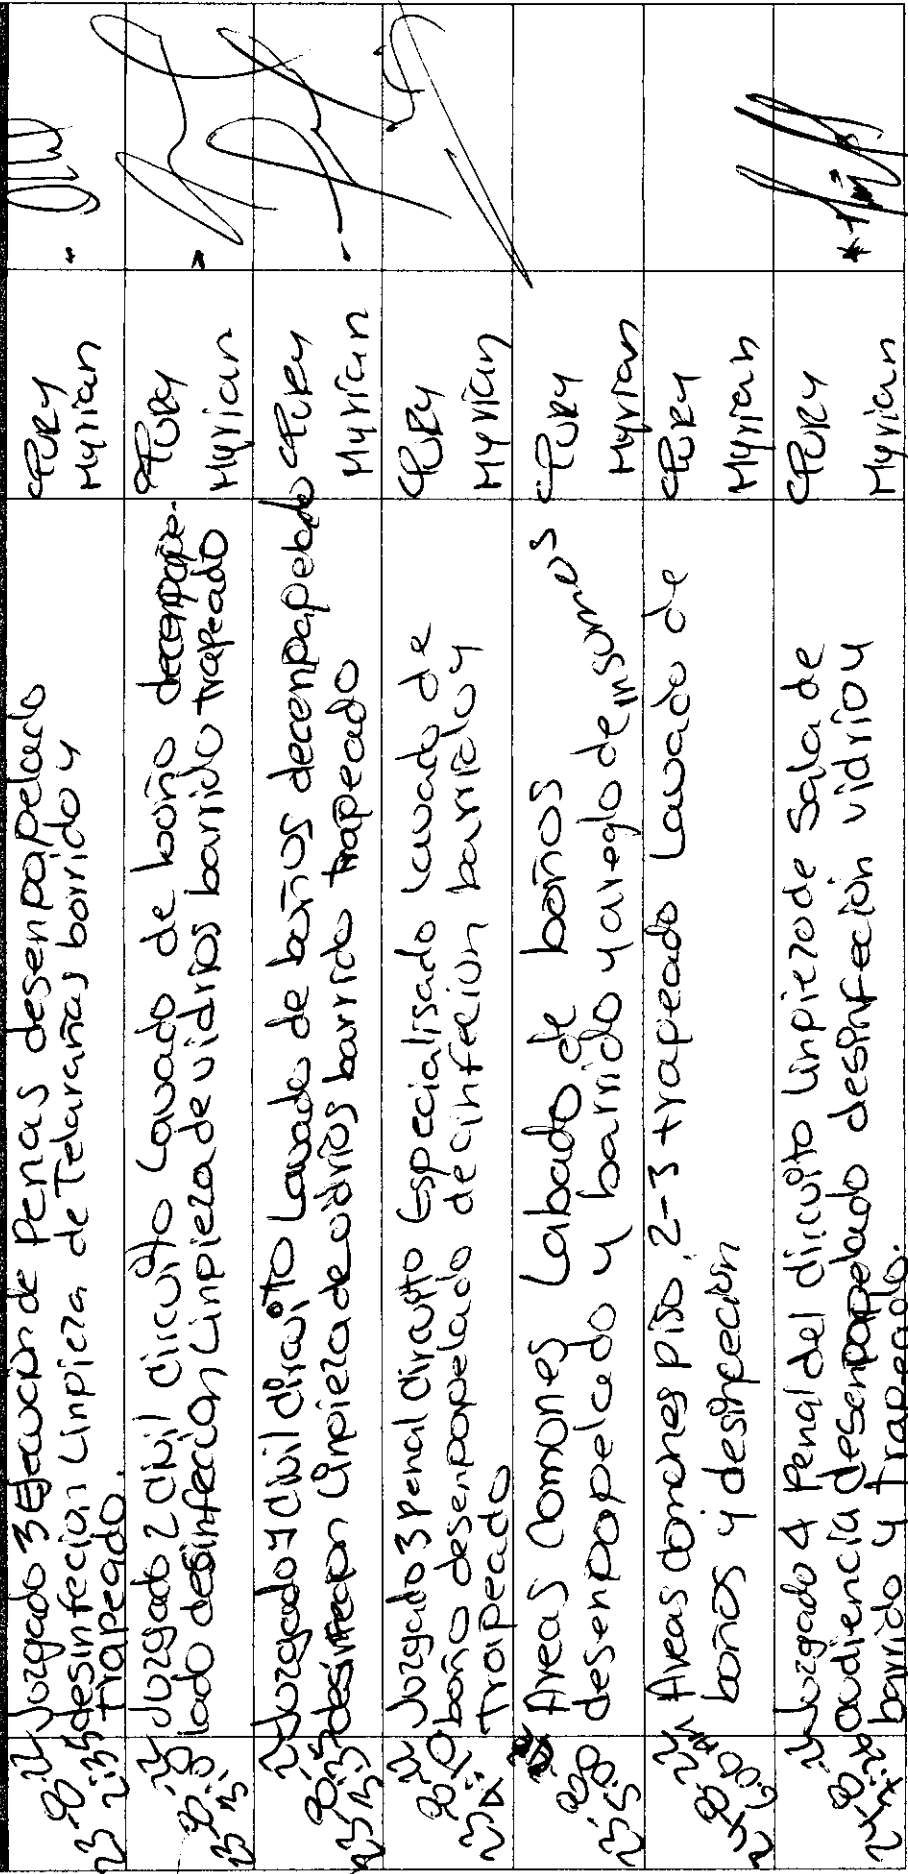 Juzgado 3 Ejecucion de Penas desenpapelado
desinfecion Linpieza de Telarañas barrido y
trapeado.
PURY
Myrian
Juzgado 2 Civil circuito Lavado de baño decenpape-
lado desinfecion Linpieza de vidrios barrido trapeado
PURY
Myrian
Juzgado 1 Civil circuito Lavado de baños decenpapelado
desinfecion Linpieza de vidrios barrido trapeado
PURY
Myrian
Juzgado 3 penal circuito Especialisado lavado de
baño desenpapelado decinfecion barrido y
trapeado
PURY
Myrian
Areas Comones Labado de baños
desenpapelado y barrido y areglo de insumos
PURY
Myrian
Areas comones piso 2-3 trapeado Lavado de
baños y desinfecion
PURY
Myrian
Juzgado 4 Penal del circuito Linpieza de Sala de
audiencia desenpapelado desinfecion vidrio y
barrido y trapeado.
PURY
Myrian